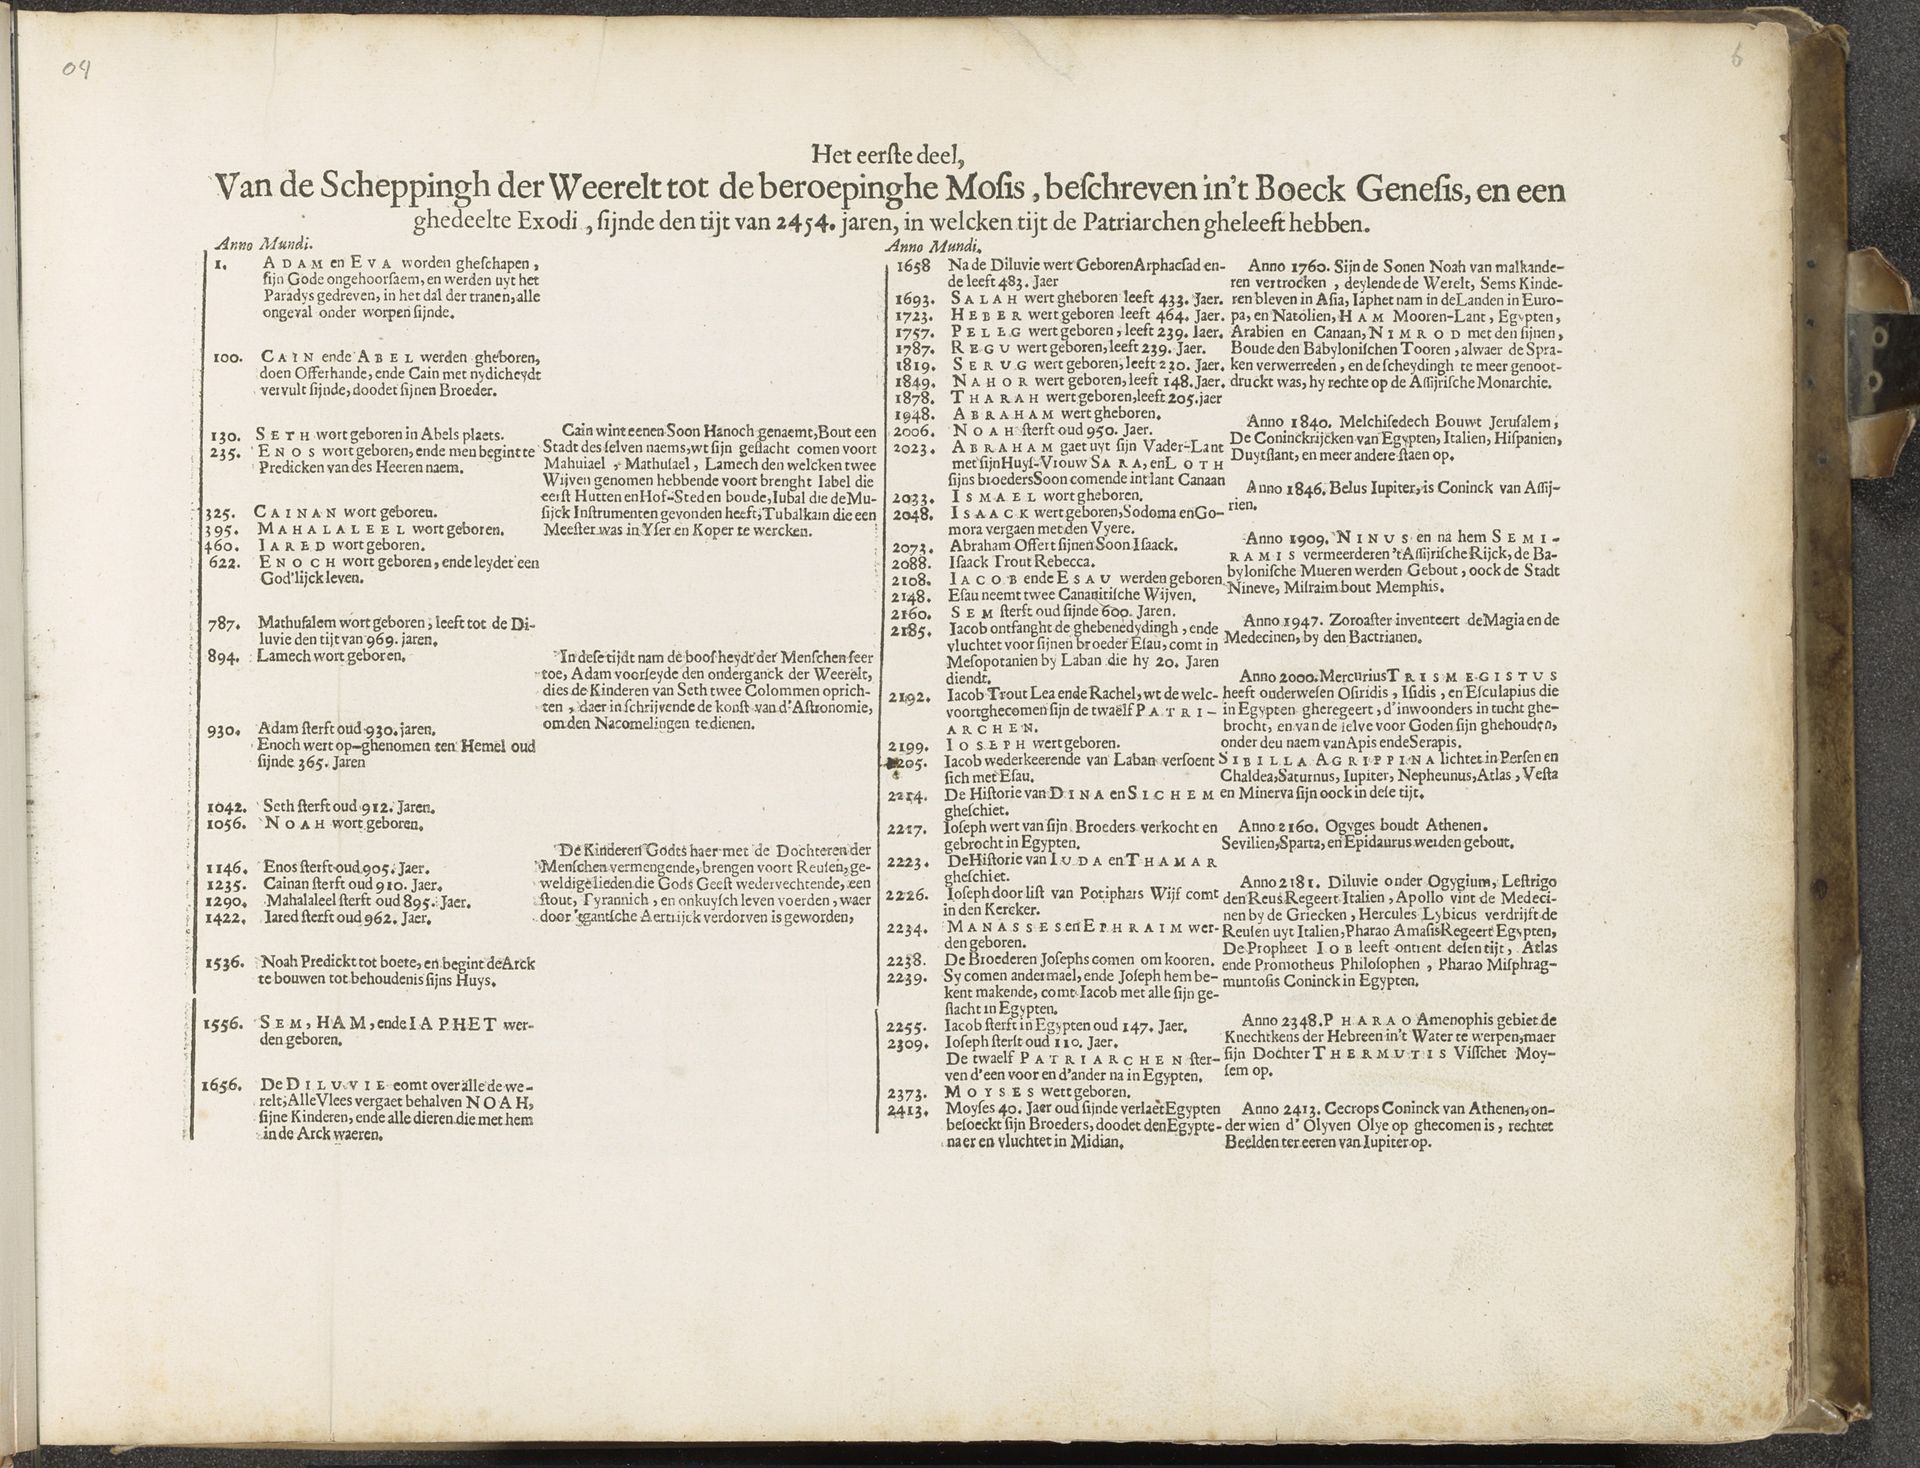 04
6
Het eerſte deel,
Van de Scheppingh der Weerelt tot de beroepinghe Moſis, beſchreven in't Boeck Geneſis, en een
ghedeelte Exodi, ſijnde den tijt van 2454. jaren, in welcken tijt de Patriarchen gheleeft hebben.
Anno Mundi.
1. ADAM en EVA worden gheſchapen,
ſijn Gode ongehoorſaem, en werden uyt het
Paradys gedreven, in het dal der tranen, alle
ongeval onder worpen ſijnde.
100. CAIN ende ABEL werden gheboren,
doen Offerhande, ende Cain met nydicheydt
vervult ſijnde, doodet ſijnen Broeder.
130. SETH wort geboren in Abels plaets.
235. ENOS wort geboren, ende men begint te
Predicken van des Heeren naem.
325. CAINAN wort geboren.
395. MAHALALEEL wort geboren.
460. IARED wort geboren.
622. ENOCH wort geboren, ende leydet een
God'lijck leven.
787. Mathuſalem wort geboren, leeft tot de Di-
luvie den tijt van 969. jaren.
894. Lamech wort geboren.
930. Adam ſterft oud 930. jaren.
Enoch wert op-ghenomen ten Hemel oud
ſijnde 365. Jaren
1042. Seth ſterft oud 912. Jaren.
1056. NOAH wort geboren.
1146. Enos ſterft oud 905. Jaer.
1235. Cainan ſterft oud 910. Jaer.
1290. Mahalaleel ſterft oud 895. Jaer.
1422. Iared ſterft oud 962. Jaer.
1536. Noah Predickt tot boete, en begint de Arck
te bouwen tot behoudenis ſijns Huys.
1556. SEM, HAM, ende IAPHET wer-
den geboren.
1656. De DILUVIE comt over alle de we-
relt, Alle Vlees vergaet behalven NOAH,
ſijne Kinderen, ende alle dieren die met hem
in de Arck waeren.
Cain wint eenen Soon Hanoch genaemt, Bout een
Stadt des ſelven naems, wt ſijn geſlacht comen voort
Mahuiael, Mathuſael, Lamech den welcken twee
Wijven genomen hebbende voort brenght Iabel die
eerſt Hutten en Hof-Steden boude, Iubal die de Mu-
ſijck Inſtrumenten gevonden heeft, Tubalkain die een
Meeſter was in Yſer en Koper te wercken.
In deſe tijdt nam de boosheydt der Menſchen ſeer
toe, Adam voorſeyde den onderganck der Weerelt,
dies de Kinderen van Seth twee Colommen oprich-
ten, daer in ſchrijvende de konſt van d'Aſtronomie,
om den Nacomelingen te dienen.
De Kinderen Godts haer met de Dochteren der
Menſchen vermengende, brengen voort Reuſen, ge-
weldige lieden die Gods Geeſt wedervechtende, een
ſtout, Tyrannich, en onkuyſch leven voerden, waer
door 'tgantſche Aertrijck verdorven is geworden,
Anno Mundi.
1658 Na de Diluvie wert Geboren Arphacſad en-
de leeft 483. Jaer
1693. SALAH wert gheboren leeft 433. Jaer.
1723. HEBER wert geboren leeft 464. Jaer.
1757. PELEG wert geboren, leeft 239. Iaer.
1787. REGU wert geboren, leeft 239. Jaer.
1819. SERUG wert geboren, leeft 230. Jaer.
1849. NAHOR wert geboren, leeft 148. Jaer.
1878. THARAH wert geboren, leeft 205. jaer
1948. ABRAHAM wert gheboren.
2006. NOAH ſterft oud 950. Jaer.
2023. ABRAHAM gaet uyt ſijn Vader-Lant
met ſijn Huyſ-Vrouw SARA, en LOTH
ſijns broeders Soon comende int lant Canaan
2033. ISMAEL wort gheboren.
2048. ISAACK wert geboren, Sodoma en Go-
mora vergaen met den Vyere.
2073. Abraham Offert ſijnen Soon Iſaack.
2088. Iſaack Trout Rebecca.
2108. IACOB ende ESAU werden geboren
2148. Eſau neemt twee Cananitiſche Wijven.
2160. SEM ſterft oud ſijnde 600. Jaren.
2185. Iacob ontfanght de ghebenedydingh, ende
vluchtet voor ſijnen broeder Eſau, comt in
Meſopotanien by Laban die hy 20. Jaren
diendt.
2192. Iacob Trout Lea ende Rachel, wt de welc-
voortghecomen ſijn de twaelf PATRI-
ARCHEN.
2199. IOSEPH wert geboren.
2205. Iacob wederkeerende van Laban verſoent
ſich met Eſau.
2214. De Hiſtorie van DINA en SICHEM
gheſchiet.
2217. Ioſeph wert van ſijn Broeders verkocht en
gebrocht in Egypten.
2223. De Hiſtorie van IUDA en THAMAR
gheſchiet.
2226. Ioſeph door liſt van Potiphars Wijf comt
in den Kercker.
2234. MANASSES en EPHRAIM wer-
den geboren.
2238. De Broederen Joſephs comen om kooren.
2239. Sy comen andermael, ende Joſeph hem be-
kent makende, comt Iacob met alle ſijn ge-
ſlacht in Egypten.
2255. Iacob ſterft in Egypten oud 147. Jaer.
2309. Ioſeph ſterft oud 110. Jaer.
De twaelf PATRIARCHEN ſter-
ven d'een voor en d'ander na in Egypten.
2373. MOYSES wert geboren.
2413. Moyſes 40. Jaer oud ſijnde verlaet Egypten
beſoeckt ſijn Broeders, doodet den Egypte-
naer en vluchtet in Midian.
Anno 1760. Sijn de Sonen Noah van malkande-
ren vertrocken, deylende de Werelt, Sems Kinde-
ren bleven in Aſia, Iaphet nam in de Landen in Euro-
pa, en Natolien, HAM Mooren-Lant, Egypten,
Arabien en Canaan, NIMROD met den ſijnen,
Boude den Babyloniſchen Tooren, alwaer de Spra-
ken verwerreden, en de ſcheydingh te meer genoot-
druckt was, hy rechte op de Aſſijriſche Monarchie.
Anno 1840. Melchiſedech Bouwt Jeruſalem,
De Coninckrijcken van Egypten, Italien, Hiſpanien,
Duytſlant, en meer andere ſtaen op.
Anno 1846. Belus Iupiter, is Coninck van Aſſij-
rien.
Anno 1909. NINUS en na hem SEMI-
RAMIS vermeerderen 't Aſſijriſche Rijck, de Ba-
byloniſche Mueren werden Gebout, oock de Stadt
Nineve, Miſraim bout Memphis.
Anno 1947. Zoroaſter inventeert de Magia en de
Medecinen, by den Bactrianen.
Anno 2000. Mercurius TRISMEGISTUS
heeft onderweſen Oſiridis, Iſidis, en Eſculapius die
in Egypten gheregeert, d'inwoonders in tucht ghe-
brocht, en van de ſelve voor Goden ſijn ghehouden,
onder deu naem van Apis ende Serapis.
SIBILLA AGRIPPINA lichtet in Perſen en
Chaldea, Saturnus, Iupiter, Nepheunus, Atlas, Veſta
en Minerva ſijn oock in deſe tijt.
Anno 2160. Ogyges boudt Athenen.
Sevilien, Sparta, en Epidaurus werden gebout.
Anno 2181. Diluvie onder Ogygium, Leſtrigo
den Reus Regeert Italien, Apollo vint de Medeci-
nen by de Griecken, Hercules Lybicus verdrijft de
Reuſen uyt Italien, Pharao Amaſis Regeert Egypten,
De Propheet IOB leeft ontrent deſen tijt, Atlas
ende Promotheus Philoſophen, Pharao Miſphrag-
muntoſis Coninck in Egypten.
Anno 2348. PHARAO Amenophis gebiet de
Knechtkens der Hebreen in't Water te werpen, maer
ſijn Dochter THERMUTIS Viſſchet Moy-
ſem op.
Anno 2413. Cecrops Coninck van Athenen, on-
der wien d' Olyven Olye op ghecomen is, rechtet
Beelden ter eeren van Iupiter op.